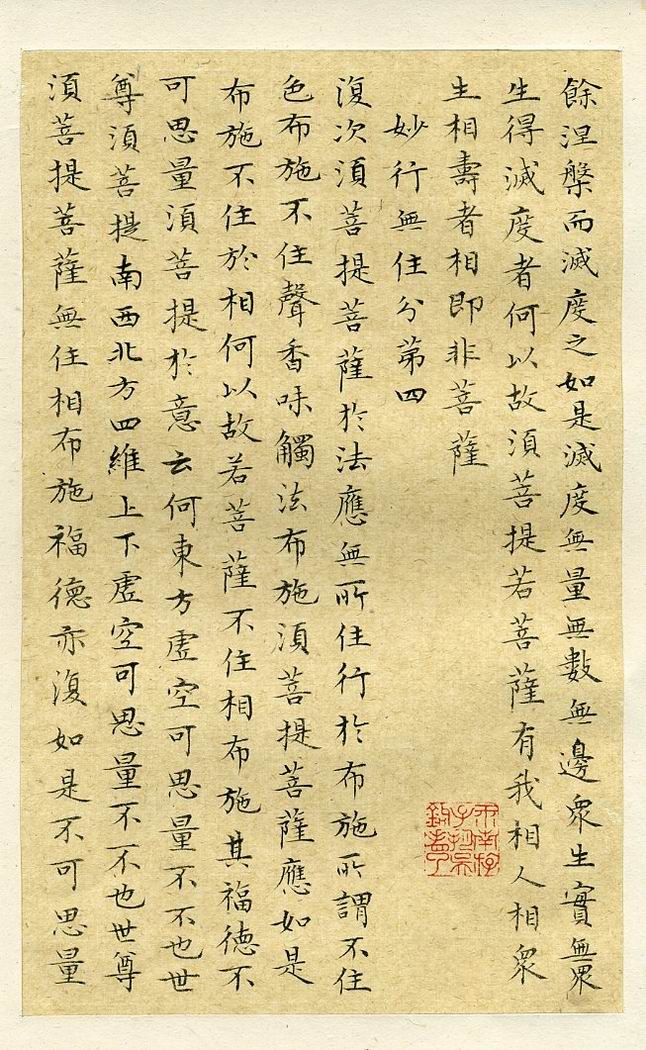 餘涅槃而滅度之如是滅度無量無數無邊眾生實無眾
生得滅度者何以故須菩提若菩薩有我相人相眾
生相壽者相即非菩薩
妙行無住分第四
復次須菩提菩薩於法應無所住行於布施所謂不住
色布施不住聲香味觸法布施須菩提菩薩應如是
布施不住於相何以故若菩薩不住相布施其福德不
可思量須菩提於意云何東方虛空可思量不不也世
尊須菩提南西北方四維上下虛空可思量不不也世尊
須菩提菩薩無住相布施福德亦復如是不可思量